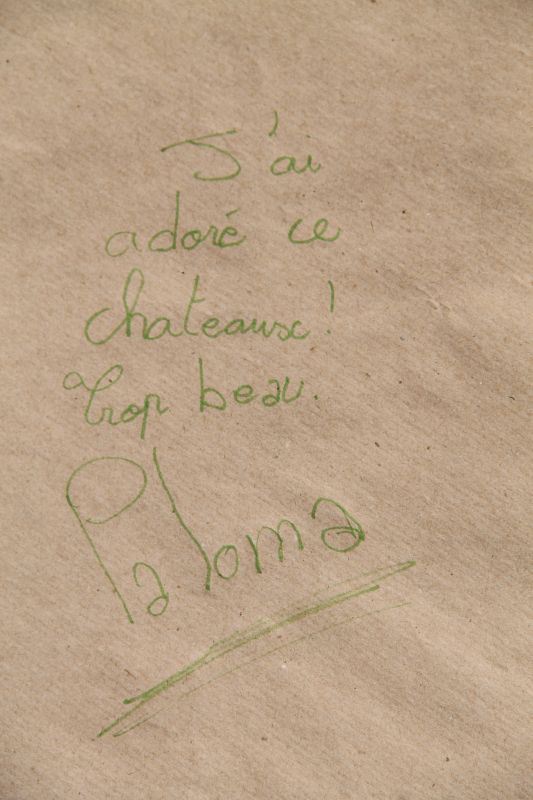 J'ai
adoré ce
chateaux!
Trop beau.
Paloma